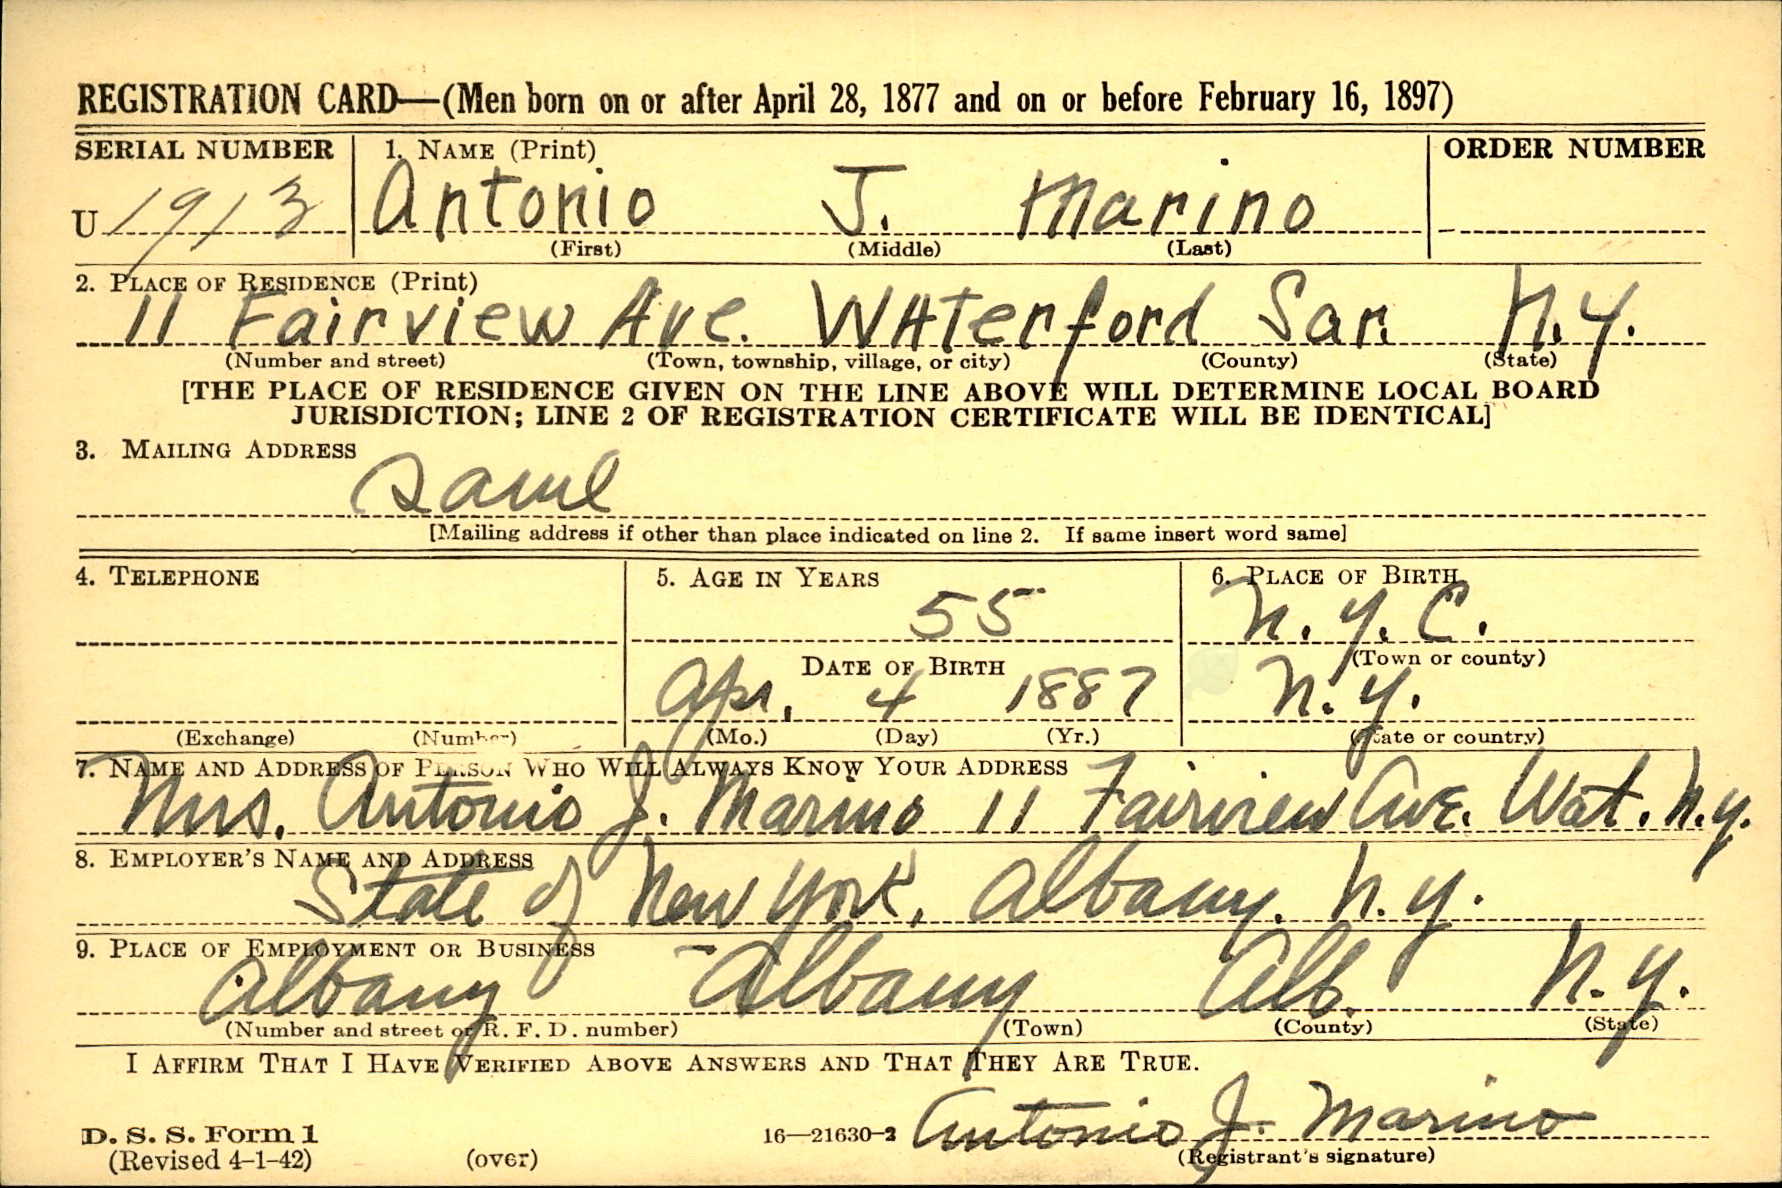 REGISTRATION CARD—(Men born on or after April 28, 1877 and on or before February 16, 1897)
SERIAL NUMBER 1. NAME (Print) ORDER NUMBER
U 1913 Antonio J. Marino
(First) (Middle) (Last)
2. PLACE OF RESIDENCE (Print)
11 Fairview Ave. WATerford Sar. N.Y.
(Number and street) (Town, township, village, or city) (County) (State)
[THE PLACE OF RESIDENCE GIVEN ON THE LINE ABOVE WILL DETERMINE LOCAL BOARD
JURISDICTION; LINE 2 OF REGISTRATION CERTIFICATE WILL BE IDENTICAL]
3. MAILING ADDRESS
Same
[Mailing address if other than place indicated on line 2. If same insert word same]
4. TELEPHONE 5. AGE IN YEARS 6. PLACE OF BIRTH
55 N.Y.C.
DATE OF BIRTH (Town or county)
Apr. 4 1887 N.Y.
(Exchange) (Number) (Mo.) (Day) (Yr.) (State or country)
7. NAME AND ADDRESS OF PERSON WHO WILL ALWAYS KNOW YOUR ADDRESS
Mrs. Antonio J. Marino 11 Fairview Ave. Wat. N.Y.
8. EMPLOYER'S NAME AND ADDRESS
State of New York, Albany, N.Y.
9. PLACE OF EMPLOYMENT OR BUSINESS
Albany - Albany Alb. N.Y.
(Number and street or R. F. D. number) (Town) (County) (State)
I AFFIRM THAT I HAVE VERIFIED ABOVE ANSWERS AND THAT THEY ARE TRUE.
Antonio J. Marino
D. S. S. Form 1 16—21630-2
(Revised 4-1-42) (over) (Registrant's signature)